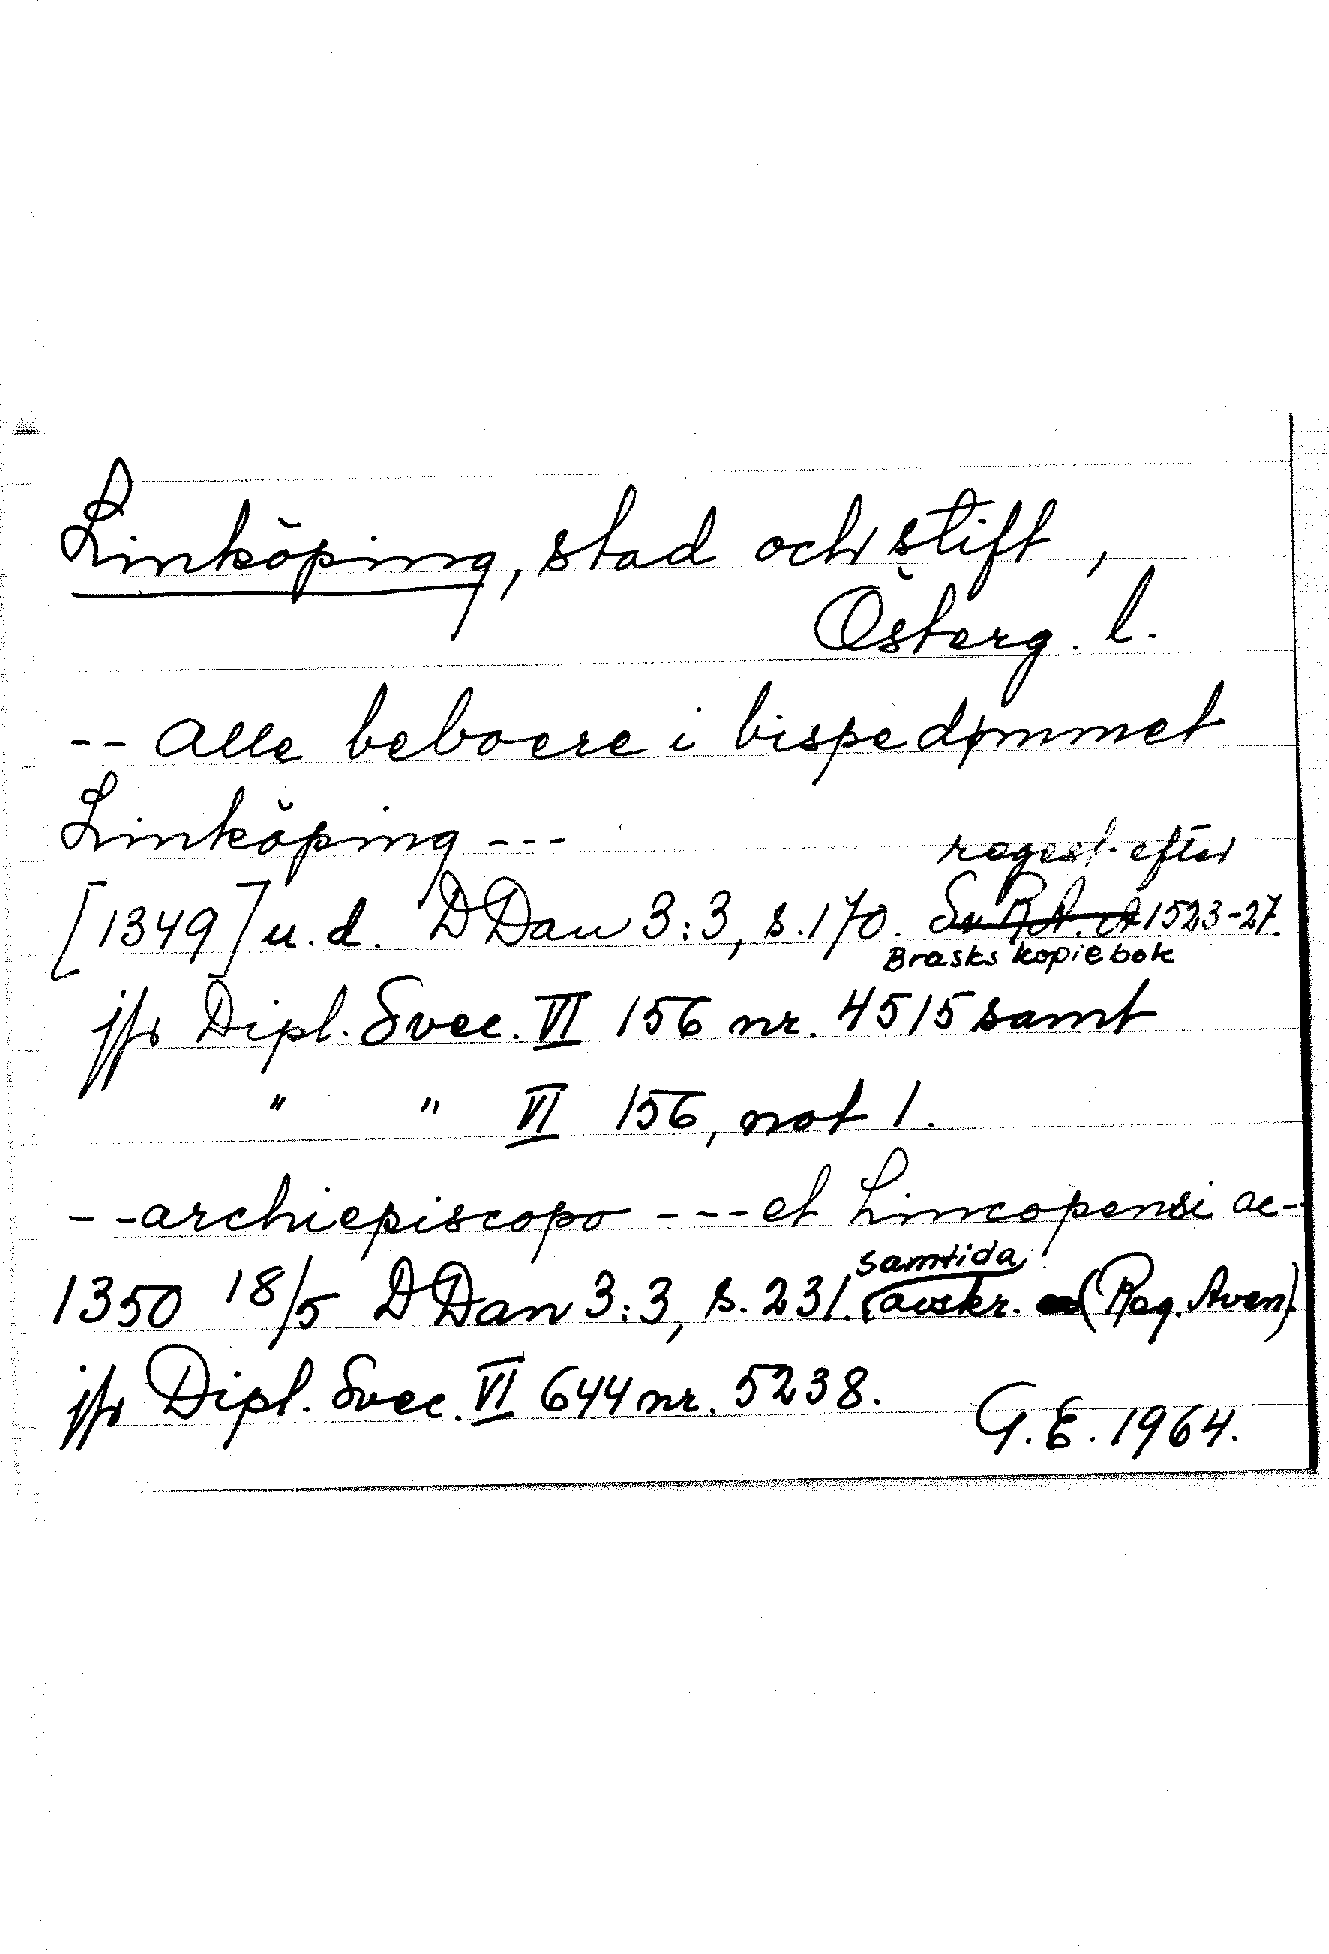 Linköping, stad och stift,
Österg. l.
-- alle beboere i bispedømmet
Linköping ---
regest efter
[1349] u. d. DDan 3:3, s. 170. Sv. R.A. A 1523-27.
Brasks kopiebok
jfr Dipl. Svec. VI 156 nr. 4515 samt
" " VI 156, not 1.
-- archiepiscopo --- et Lincopensi ac--
samtida
1350 18/5 DDan 3:3, s. 231. avskr. (Reg. Aven).
jfr Dipl. Svec. VI 644 nr. 5238.
G.E. 1964.